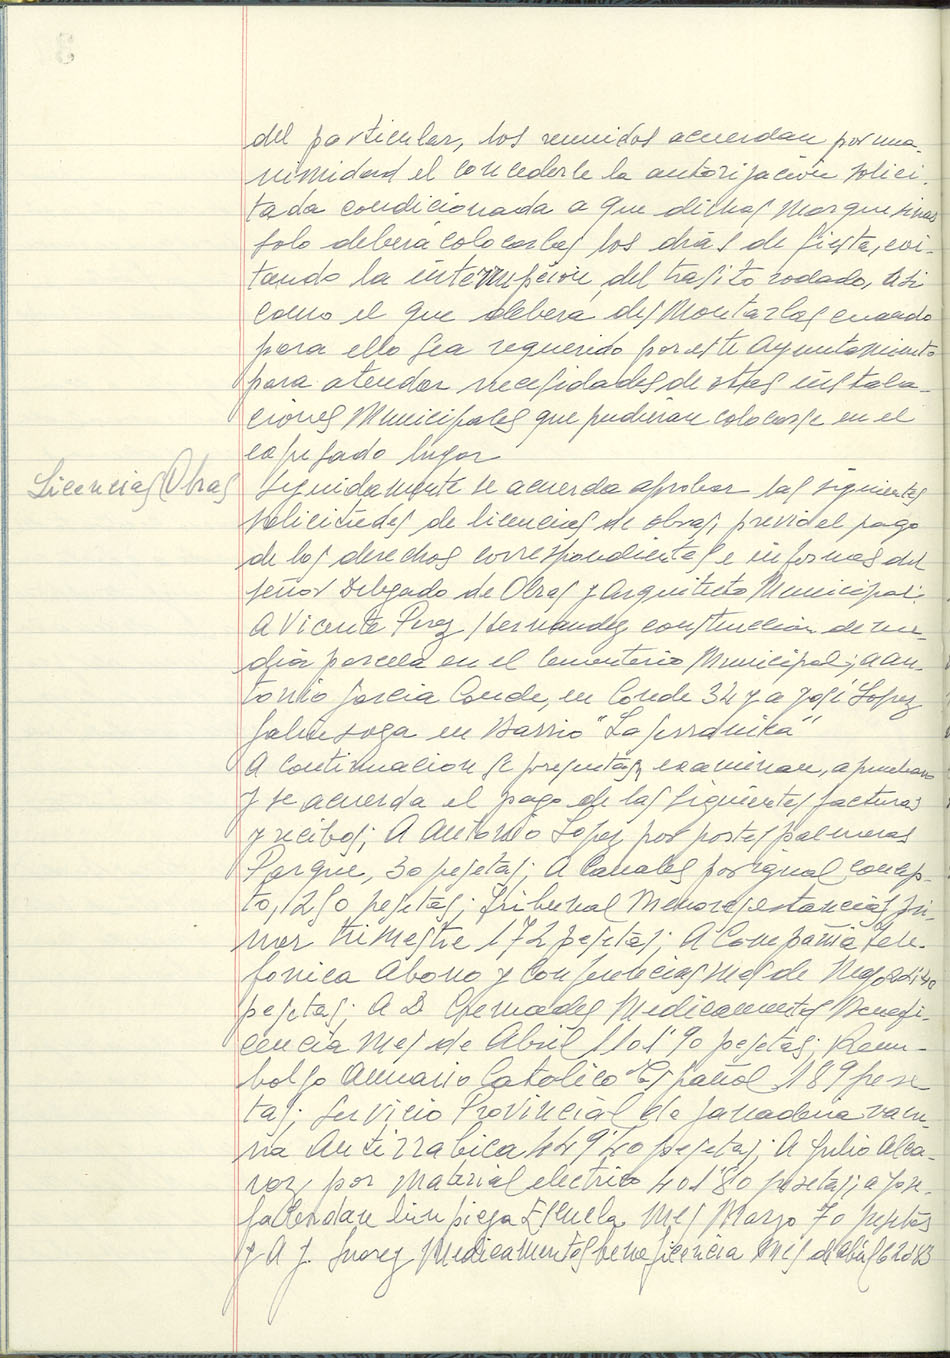 del particular, los reunidos acuerdan por una-
nimidad el concederle la autorización solici-
tada condicionada a que dichas Marquesinas
solo deberá colocarlas los dias de fiesta, evi-
tando la interrupción del trasito rodado, asi
como el que deberá desmontarlas cuando
para ello sea requerido por este Ayuntamiento
para atender necesidades de otras instala-
ciones Municipales que pudieran colocarse en el
expresado lugar
Licencias Obras
Seguidamente se acuerda aprobar las siguientes
solicitudes de licencias de obras, previo el pago
de los derechos correspondientes e informes del
señor Delegado de Obras y Arquitecto Municipal:
A Vicente Perez Hernandez construccion de me-
dia parcela en el Cementerio Municipal; a An-
tonio Garcia Conde, en Conde 34 y a José Lopez
en Barrio "La Serranica"
A continuacion se presentan, examinan, aprueban
y se acuerda el pago de las siguientes facturas
y recibos; A Antonio Lopez por portes palmeras
Parque, 30 pesetas; A Canales por igual concep-
to, 250 pesetas; Tribunal Menores estancias pri-
mer trimestre 172 pesetas; A Compañia Tele-
fonica Abono y Conferencias mes de Mayo
pesetas; A D. Cremades Medicamentos Benefi-
cencia Mes de Abril 1101'90 pesetas; Reem-
bolso Anuario Catolico Español 189 pese-
tas; Servicio Provincial de Ganaderia vacu-
na Antirrabica 449'40 pesetas; A Julio Alca-
roz por material electrico 401'80 pesetas; a Jose-
fa Cerdan limpieza Escuela Mes Marzo 70 pesetas
y A J. Suarez Medicamentos beneficencia Mes de Abril